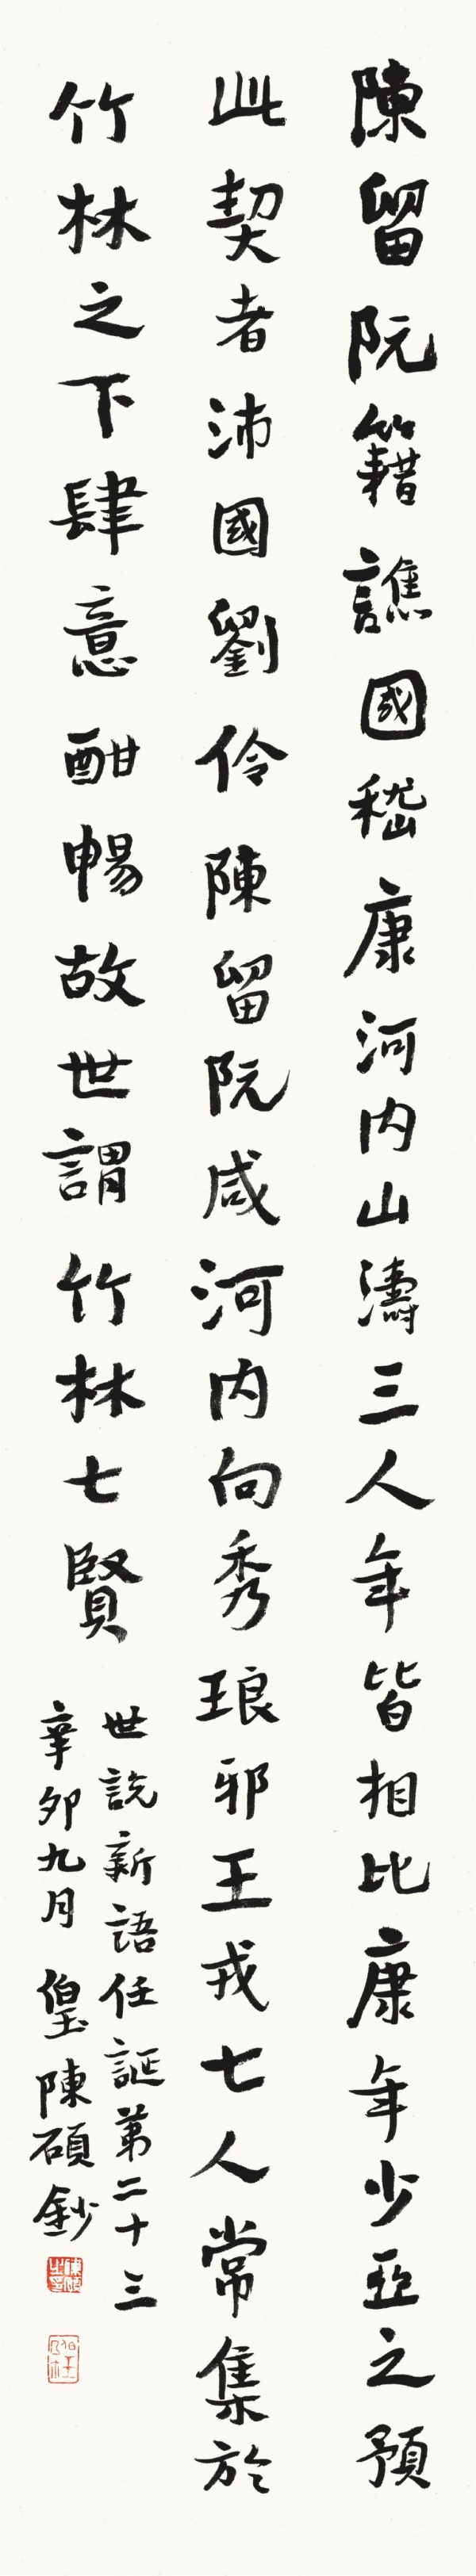 陳留阮籍譙國嵇康河内山濤三人年皆相比康年少亞之預
此契者沛國劉伶陳留阮咸河内向秀琅邪王戎七人常集於
竹林之下肆意酣暢故世謂竹林七賢
世説新語任誕第二十三
辛卯九月 陳碩鈔
陳碩之印